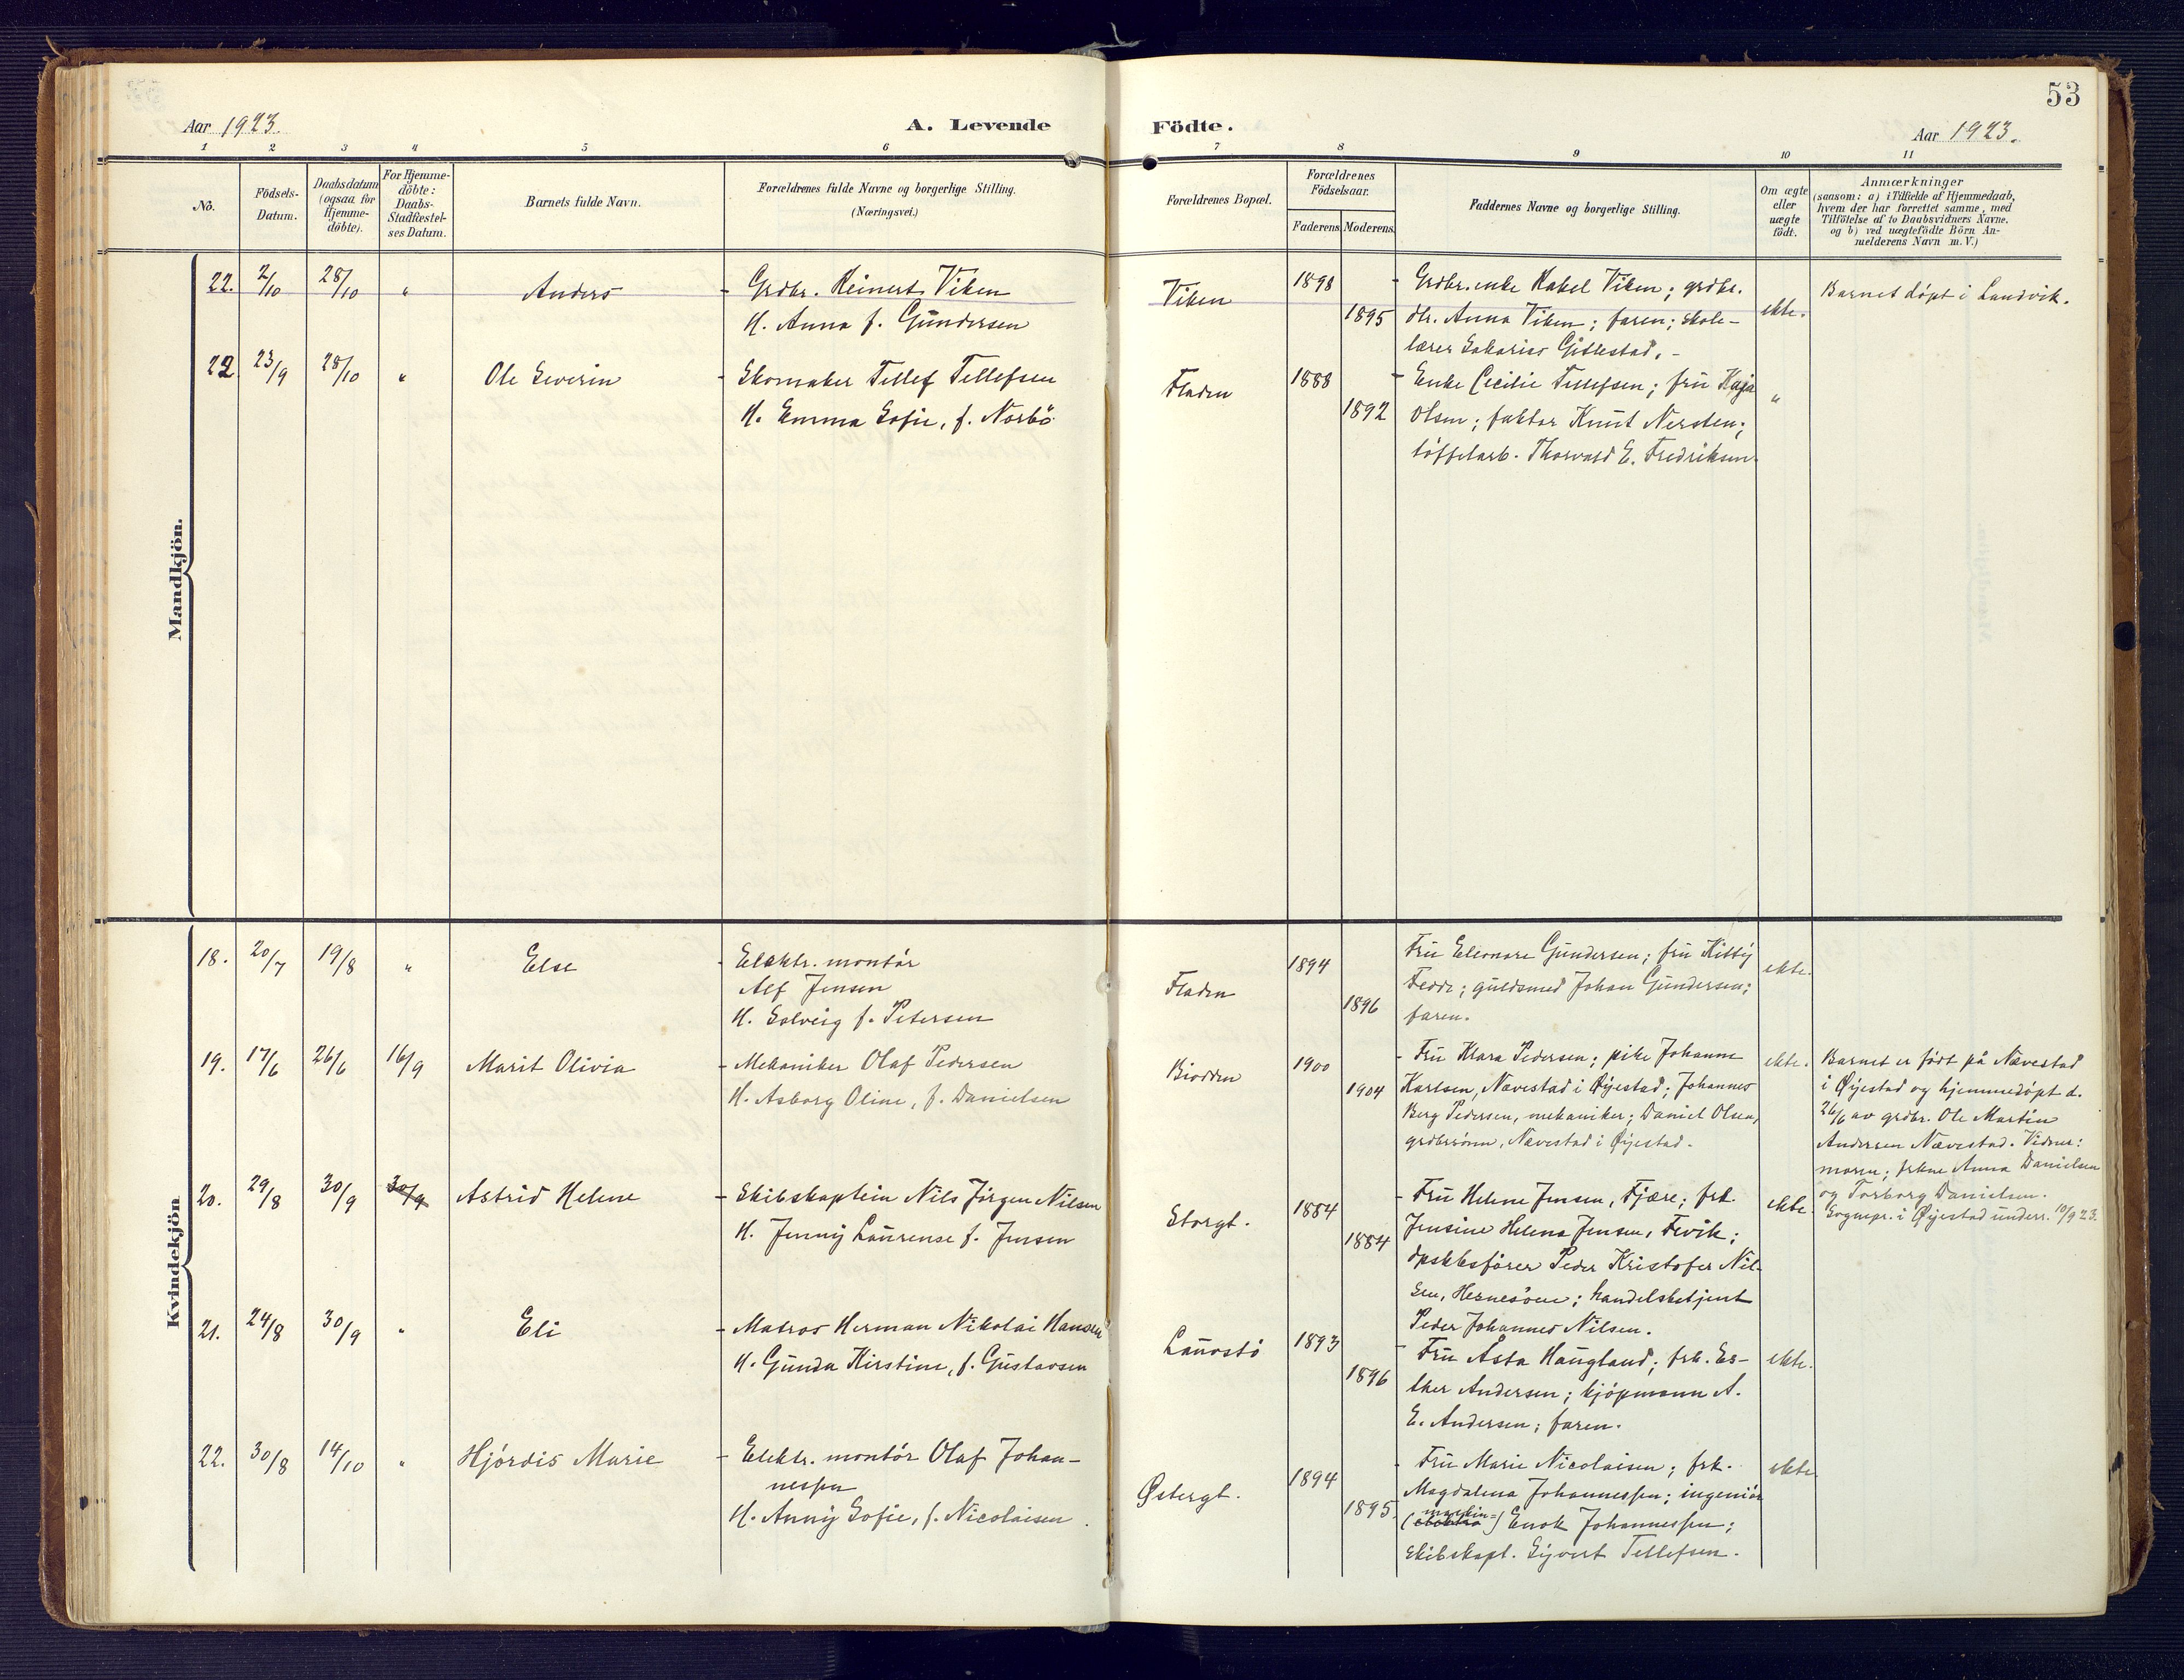 53
Aar 1923.
A. Levende Födte.
Aar 1923.
1 2 3 4 5 6 7 8 9 10 11
No.
Födsels-
Datum.
Daabsdatum
(ogsaa for
Hjemme-
döbte).
For Hjemme-
döbte:
Daabs-
Stadfæstel-
ses Datum.
Barnets fulde Navn.
Forældrenes fulde Navne og borgerlige Stilling.
(Næringsvei.)
Forældrenes Bopæl.
Forældrenes
Födselsaar.
Faderens Moderens
Faddernes Navne og borgerlige Stilling.
Om ægte
eller
uægte
födt.
Anmærkninger
(saasom: a) i Tilfælde af Hjemmedaab,
hvem der har forrettet samme, med
Tilföielse af to Daabsvidners Navne,
og b) ved uægtefödte Börn An-
melderens Navn m.V.)
Mandkjön.
22. 2/10 28/10 " Anders
- Grdbr. Reinert Viken
H. Anna f. Gundersen
Viken
1898
1895
- Grdbr.enke Kabel Viken; grdbr.
dtr. Anna Viken; faren; skole-
lærer Sakarias Gitlestad. -
ekte.
Barnet döpt i Landvik.
22 23/9 28/10 " Ole Severin
- Skomaker Tellef Tellefsen
H. Emma Sofie, f. Norbö
Fladen
1888
1892
- Enke Cecilie Tellefsen; fru Kaja
Olsen; faktor Knut Nersten;
töffelarb. Thorvald E. Fredriksen.
"
Kvindekjön
18. 20/7 19/8 " Else
- Elektr. montör
Alf Jensen
H. Solveig f. Petersen
Fladen
1894
1896
Fru Eleonore Gundersen; fru Kitty
Fedde; guldsmed Johan Gundersen;
faren.
ekte.
19. 17/6 26/6 16/9 Marit Olivia
- Mekaniker Olaf Pedersen
H. Asborg Oline, f. Danielsen
Biodden
1900
1904
- Fru Klara Pedersen; pike Johanne
Karlsen, Nævestad i Øyestad; Johannes
Berg Pedersen, mekaniker; Daniel Olsen,
grdbrsönn, Nævestad i Øyestad.
ekte.
Barnet er født på Nævestad
i Øyestad og hjemmedöpt d.
26/6 av grdbr. Ole Martin
Andersen Nævestad. Vidner:
moren; frkne Anna Danielsen
og Torborg Danielsen.
Sognepr. i Øyestad underr. 10/9 23.
20. 29/8 30/9 30/9 Astrid Helene
- Skibskaptein Nils Jörgen Nilsen
H. Jenny Laurense f. Jensen
Storgt.
1884
1884
- Fru Helene Jensen, Fjære; frk.
Jensine Helena Jensen, Fevik;
dpskbsförer Peder Kristofer Nil-
sen, Hesnesöen; handelsbetjent
Peder Johannes Nilsen.
ekte.
21. 24/8 30/9 " Eli
- Matros Herman Nikolai Hansen
H. Gunda Kirstine, f. Gustavsen
Lauvstö
1893
1896
- Fru Åsta Haugland; frk. Es-
ther Andersen; kjöpmann A.
E. Andersen; faren.
ekte.
22. 30/8 14/10 " Hjördis Marie
- Elektr. montör Olaf Johan-
nessen
H. Anny Sofie, f. Nicolaisen.
Østergt.
1894
1895.
- Fru Marie Nicolaisen; frk.
Magdalena Johannessen; ingeniör
maskin=
(elektro) Enok Johannessen;
skibskapt. Syvert Tellefsen.
ekte